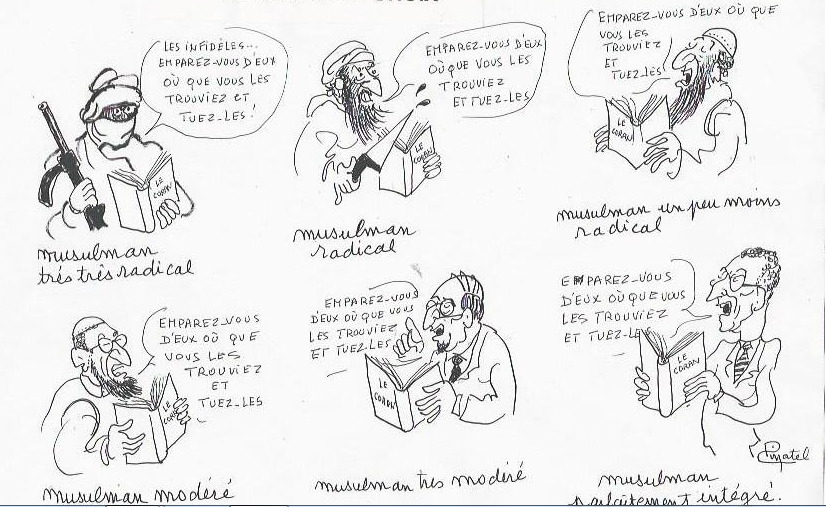 LES INFIDÈLES...
EMPAREZ-VOUS D'EUX
OÙ QUE VOUS LES
TROUVIEZ ET
TUEZ-LES!
LE
CORAN
musulman
trés très radical
EMPAREZ-VOUS D'EUX
OÙ QUE VOUS LES
TROUVIEZ
ET TUEZ-LES
LE
CORAN
musulman
radical
EMPAREZ-VOUS D'EUX OÙ QUE
VOUS LES
TROUVIEZ
ET
TUEZ-LES
LE
CORAN
musulman un peu moins
radical
EMPAREZ-VOUS
D'EUX OÙ QUE
VOUS LES
TROUVIEZ
ET
TUEZ-LES
LE
CORAN
musulman modéré
EMPAREZ-VOUS
D'EUX OÙ QUE VOUS
LES TROUVIEZ
ET TUEZ-LES
LE
CORAN
musulman tres modéré
EMPAREZ-VOUS
D'EUX OÙ QUE VOUS
LES TROUVIEZ
ET TUEZ-LES
LE
CORAN
musulman
parfaitement intégré.
Pinatel